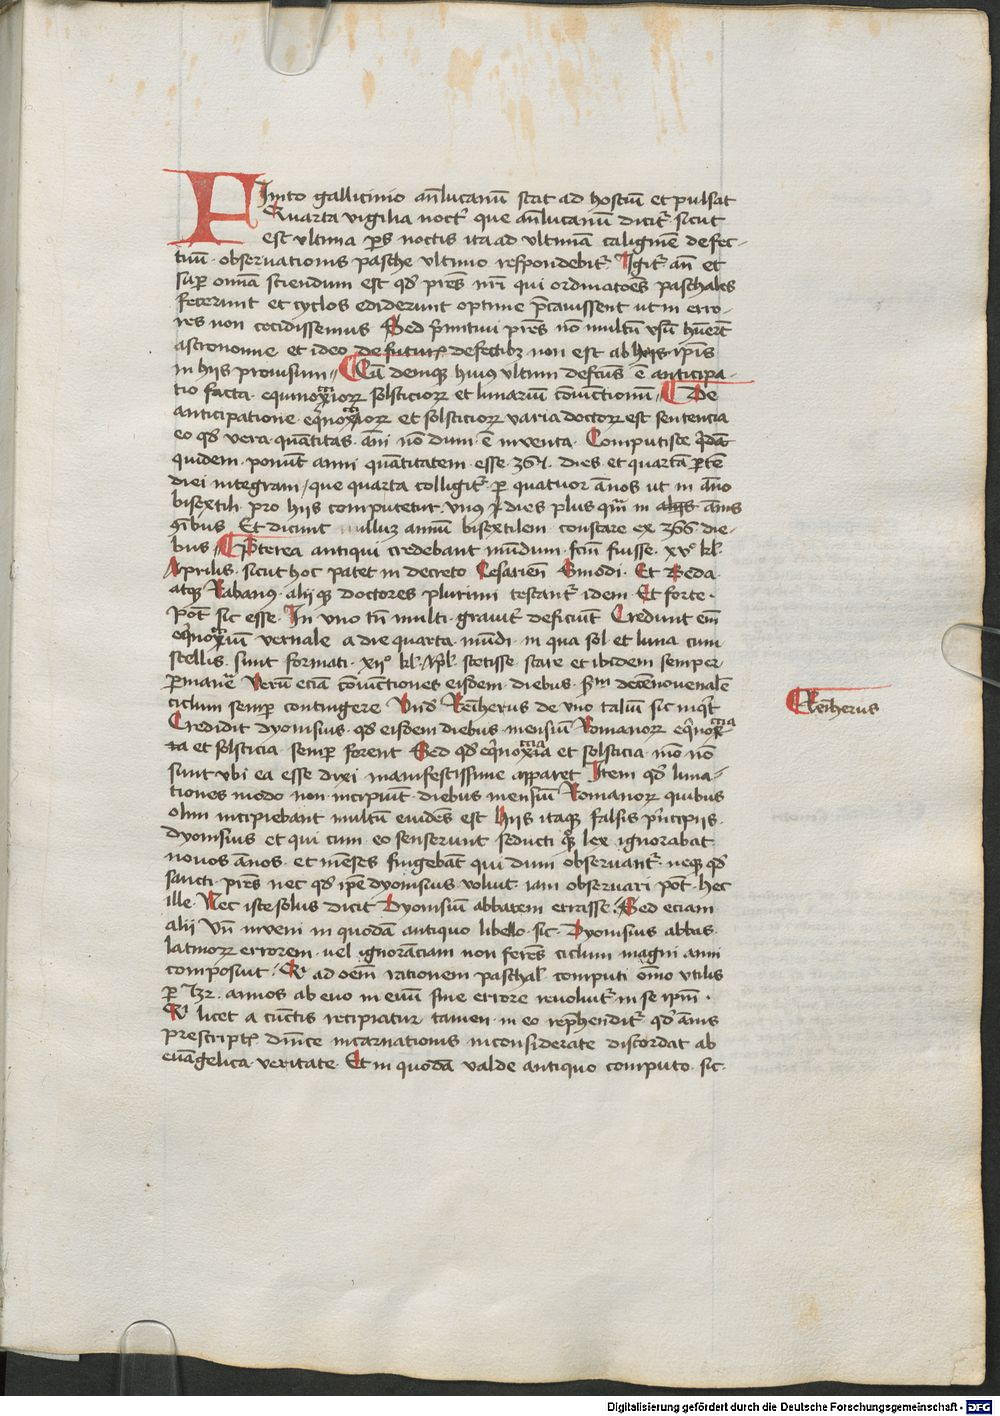 Finito gallicinio an̄lucanū stat ad hostiū et pulsat
Quarta vigilia noct͛ que an̄lucanū dicit͛ sicut
est vltima ps̄ noctis ita ad vltimā caliginē defec-
tiuū · obseruationis pasche vltimo respondebit͛ Igit͛ an̄ et
sup̲ om̄ia sciendum est qd̓ pr̄es nr̄i qui ordinatōes paschales
fecerunt et cyclos ediderunt optime p̄cauissent ut in erro-
res non cecidissemus Sed p̄mitiui pr̄es nō multū vsū hūer̄t
astronomie et ideo de futuris defectibꝫ non est ab hijs ip̄is
in hijs prouisum // Cū deniqꝫ huius vltimi defcūs ē anticipa-
tio facta · equinoxiorꝝ solsticiorꝝ et lunarium cōiunctionū // De
anticipatione eq̓noxiorꝝ et solsticiorꝝ varia doctorꝝ est sententia
eo qd̓ vera quātitas · āni nō dum · ē inventa · Computiste q̓dā
quidem · ponūt anni quātitatem · esse · 365 · dies · et quartā p̲tē
diei integram / que quarta colligit͛ · p̲ quatuor ānos ut in āno
bisextili · pro hijs computetur vnꝰ dies plus qm̄ in alijs ānis
q̓bus Et dicunt nulluꝫ annū bisextilem constare ex 366 die-
bus // P̄terea antiqui credebant mūdum · fcm̄ fuisse · xvº kl̓
Aprilis · sicut hoc patet in decreto Cesariēn Sinodi · Et Beda ·
atqꝫ Rabanꝰ · alijqꝫ doctores plurimi testant͛ idem · Et forte ·
pōt sic esse · In vno tn̄ multi · grauit͛ deficiūt Credunt em̄
eq̓noxiū vernale a die quarta · mūdi · in qua sol et luna cum
stellis · sunt formati · xijº kl̓ · Apl̓ · stetisse stare et ibidem semper
p̲manē͛ Verū eciā cōiunctiones eisdem diebus · scdm̄ decēnouenalē
ciclum semp̲ contingere Vnd̓ Reīherus de vno taliū sic inq̓t
Credidit dyonisius · qd̓ eisdem diebus mensiū Romanorꝝ eq̓nox-
ia et solsticia · semp̲ forent Sed qd̓ eq̓noxia et solsticia · mo nō
sunt vbi ea esse dixi manifestissime apparet Item qd̓ luna-
tiones modo non incipiūt · diebus mensiū Romanorꝝ quibus
olim incipiebant multū euidēs est Hijs itaqꝫ falsis p̓ncipijs ·
dyonisius et qui cum eo senserunt seducti q̓ꝫ lex ignorabat
nouos ānos · et mēses fingebāt qui dum obseruant͛ neqꝫ qd̓
sancti · pr̄es nec qd̓ ip̄e dyonisius · voluit iam obseruari pōt · hec
ille · Nec iste solus dicit Dyonisiū abbatem errisse · Sed eciam
alij Vn̄ inveni in quodā antiquo libello · sic · Dyonisius abbas ·
latinorꝝ errorem · uel ignorāciam non ferēs ciclum magni anni
composuit · Et ad oēm rationem paschal̓ computi om̄o vtilis
p̲ 532 · annos ab euo in euū sine errore reuoluit͛ in se ip̄m ·
Et licet a cūctis recipiatur tamen · in eo rep̄hendit͛ qd̓ ānis
prescriptis dn̄ice incarnationis · inconsiderate discordat ab
euāgelica · veritate · Et in quodā valde antiquo computo · sic ·
Reīherus
Digitalisierung gefördert durch die Deutsche Forschungsgemeinschaft - DFG